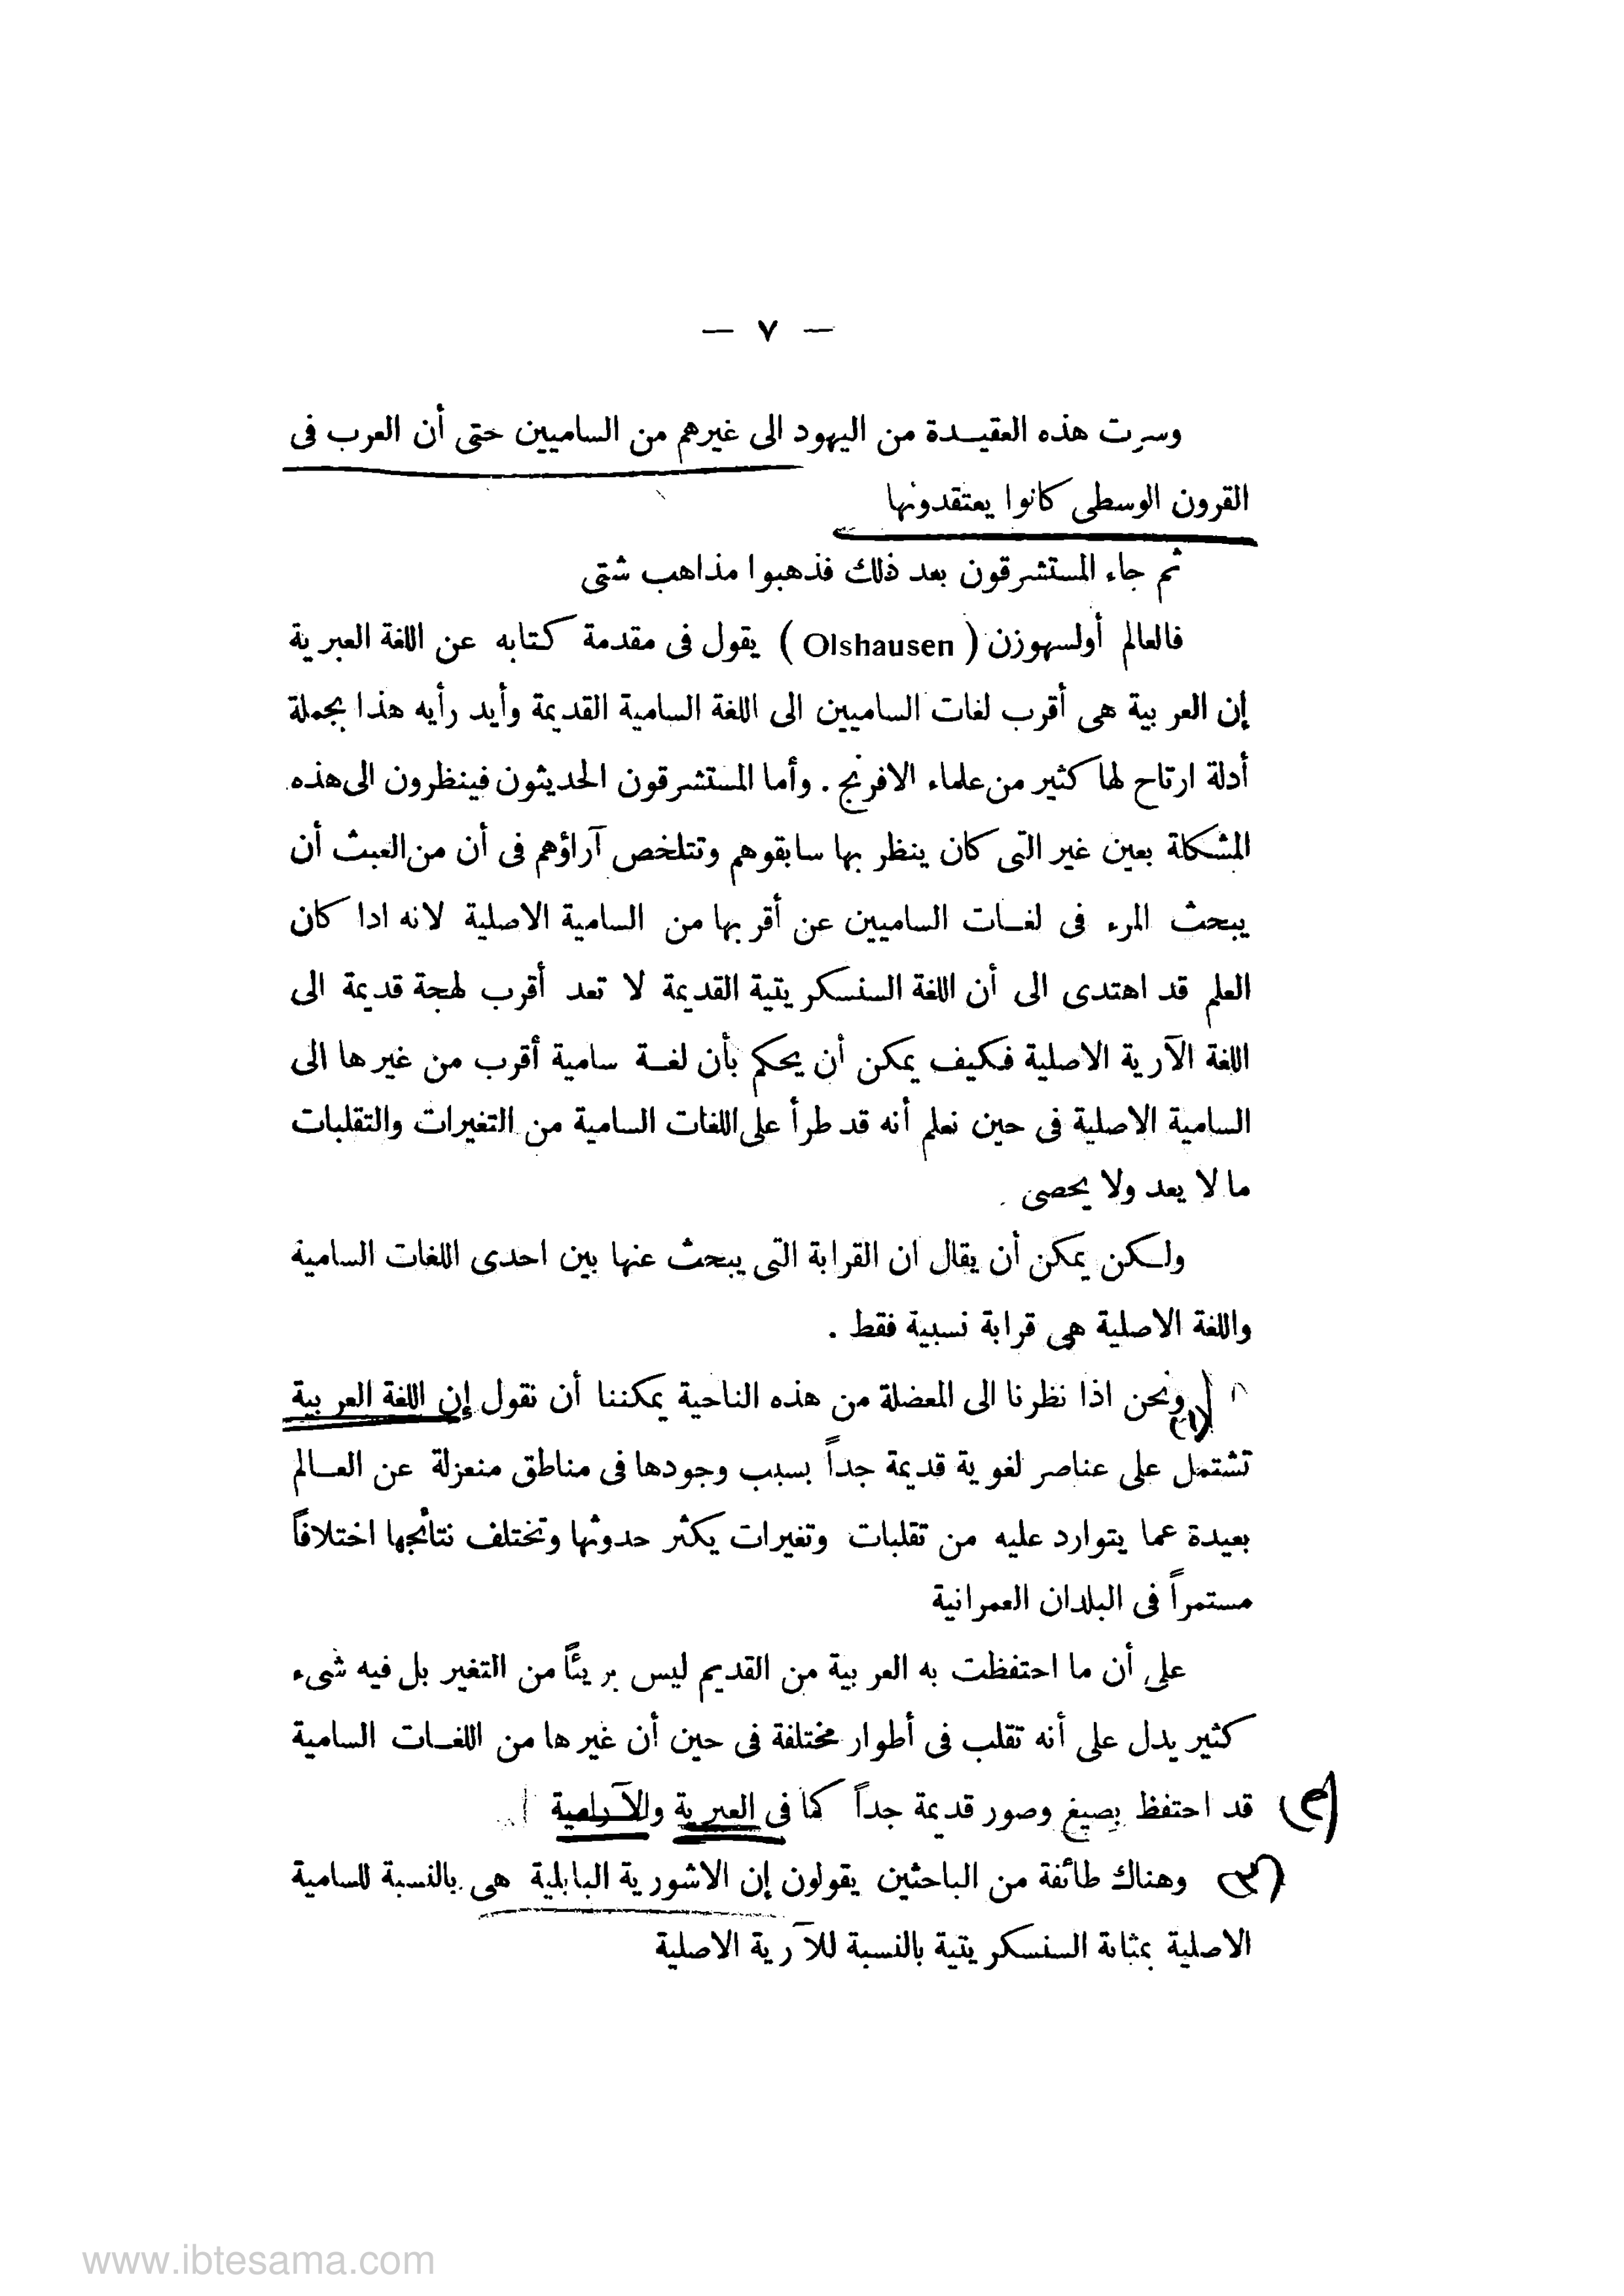 — ٧ —
وسرت هذه العقيـدة من اليهود الى غيرهم من الساميين حتى أن العرب فى
القرون الوسطى كانوا يعتقدونها
ثم جاء المستشرقون بعد ذلك فذهبوا مذاهب شتى
فالعالم أولسهوزن ( Olshausen ) يقول فى مقدمة كتابه عن اللغة العبرية
إن العربية هى أقرب لغات الساميين الى اللغة السامية القديمة وأيد رأيه هذا بجملة
أدلة ارتاح لها كثير من علماء الافرنج . وأما المستشرقون الحديثون فينظرون الى هذه
المشكلة بعين غير التى كان ينظر بها سابقوهم وتتلخص آراؤهم فى أن من العبث أن
يبحث المرء فى لغـات الساميين عن أقربها من السامية الاصلية لانه اذا كان
العلم قد اهتدى الى أن اللغة السنسكريتية القديمة لا تعد أقرب لهجة قديمة الى
اللغة الآرية الاصلية فكيف يمكن أن يحكم بأن لغـة سامية أقرب من غيرها الى
السامية الاصلية فى حين نعلم أنه قد طرأ على اللغات السامية من التغيرات والتقلبات
ما لا يعد ولا يحصى .
ولـكن يمكن أن يقال ان القرابة التى يبحث عنها بين احدى اللغات السامية
واللغة الاصلية هى قرابة نسبية فقط .
(١) ونحن اذا نظرنا الى المعضلة من هذه الناحية يمكننا أن نقول إن اللغة العربية
تشتمل على عناصر لغوية قديمة جداً بسبب وجودها فى مناطق منعزلة عن العـالم
بعيدة عما يتوارد عليه من تقلبات وتغيرات يكثر حدوثها وتختلف نتائجها اختلافاً
مستمراً فى البلدان العمرانية
على أن ما احتفظت به العربية من القديم ليس بريئاً من التغير بل فيه شىء
كثير يدل على أنه تقلب فى أطوار مختلفة فى حين أن غيرها من اللغـات السامية
قد احتفظ بصيغ وصور قديمة جداً كما فى العبرية والآرامية
(٣) وهناك طائفة من الباحثين يقولون إن الاشورية البابلية هى بالنسبة للسامية
الاصلية بمثابة السنسكريتية بالنسبة للآرية الاصلية
www.ibtesama.com